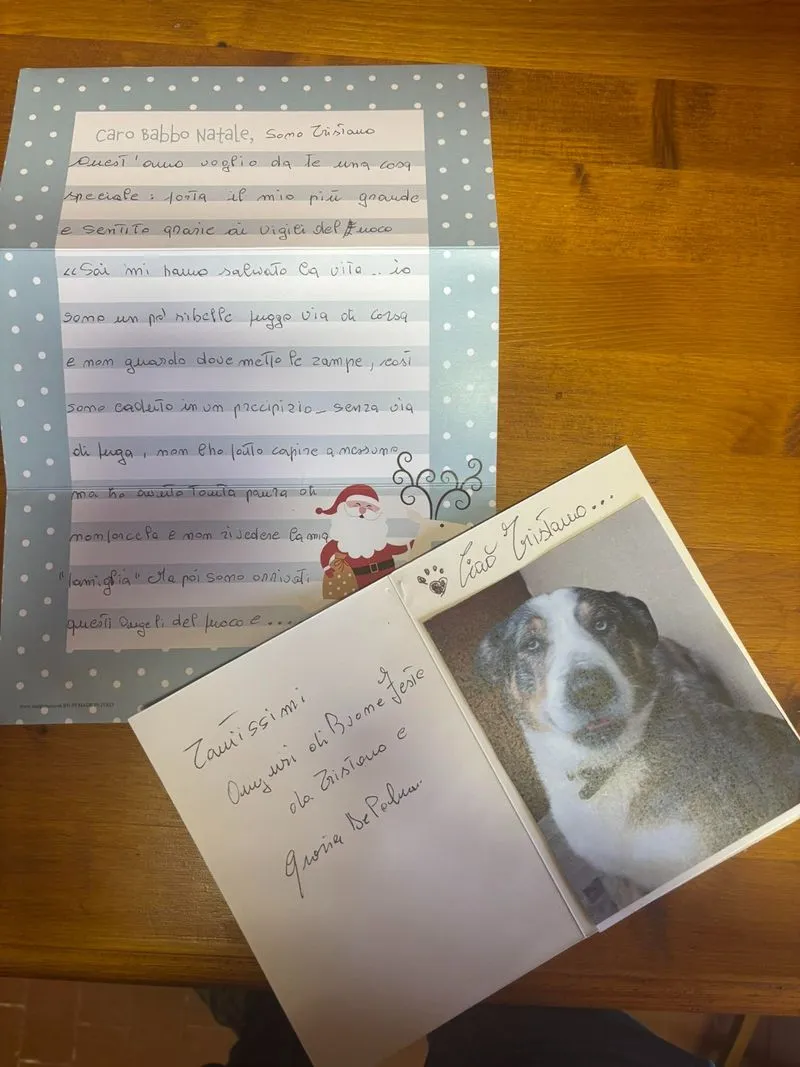 Caro Babbo Natale, Sono Tristano
Quest'anno voglio da te una cosa
speciale: porta il mio più grande
e sentito grazie ai vigili del fuoco
"Sai mi hanno salvato la vita.. io
sono un pò ribelle fuggo via di corsa
e non guardo dove metto le zampe, così
sono caduto in un precipizio_ senza via
di fuga, non l'ho fatto capire a nessuno
ma ho avuto tanta paura di
non farcela e non rivedere la mia
"famiglia" Ma poi sono arrivati
questi angeli del fuoco e ....
Ciao Tristano...
Tantissimi
Auguri di Buone Feste
da Tristano e
De Palma.